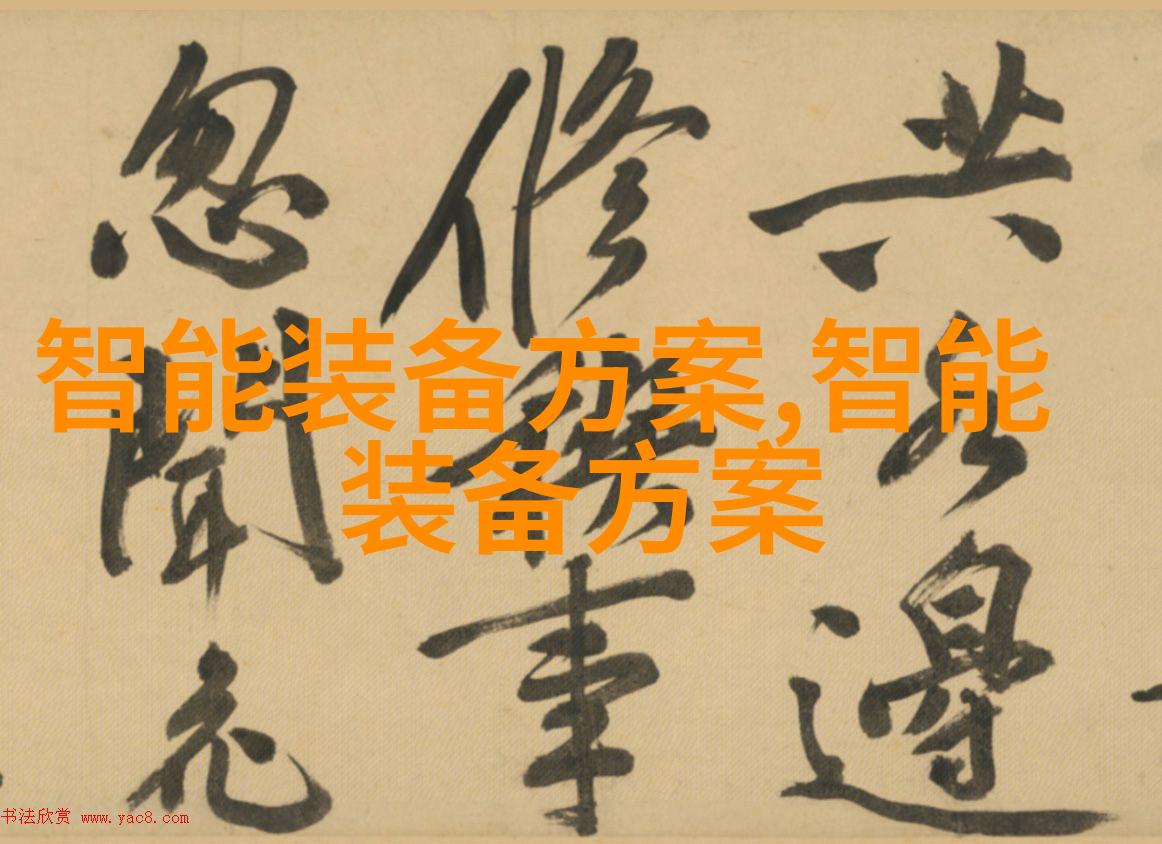 智能装备方案,智能
装备方案
共
邊
修
事
忽聞
书法欣赏 www.yac8.com